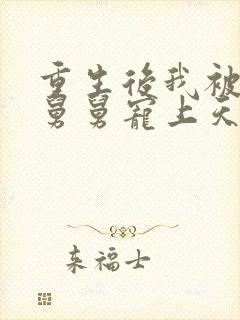 重生后我被
舅舅宠上天
来福士